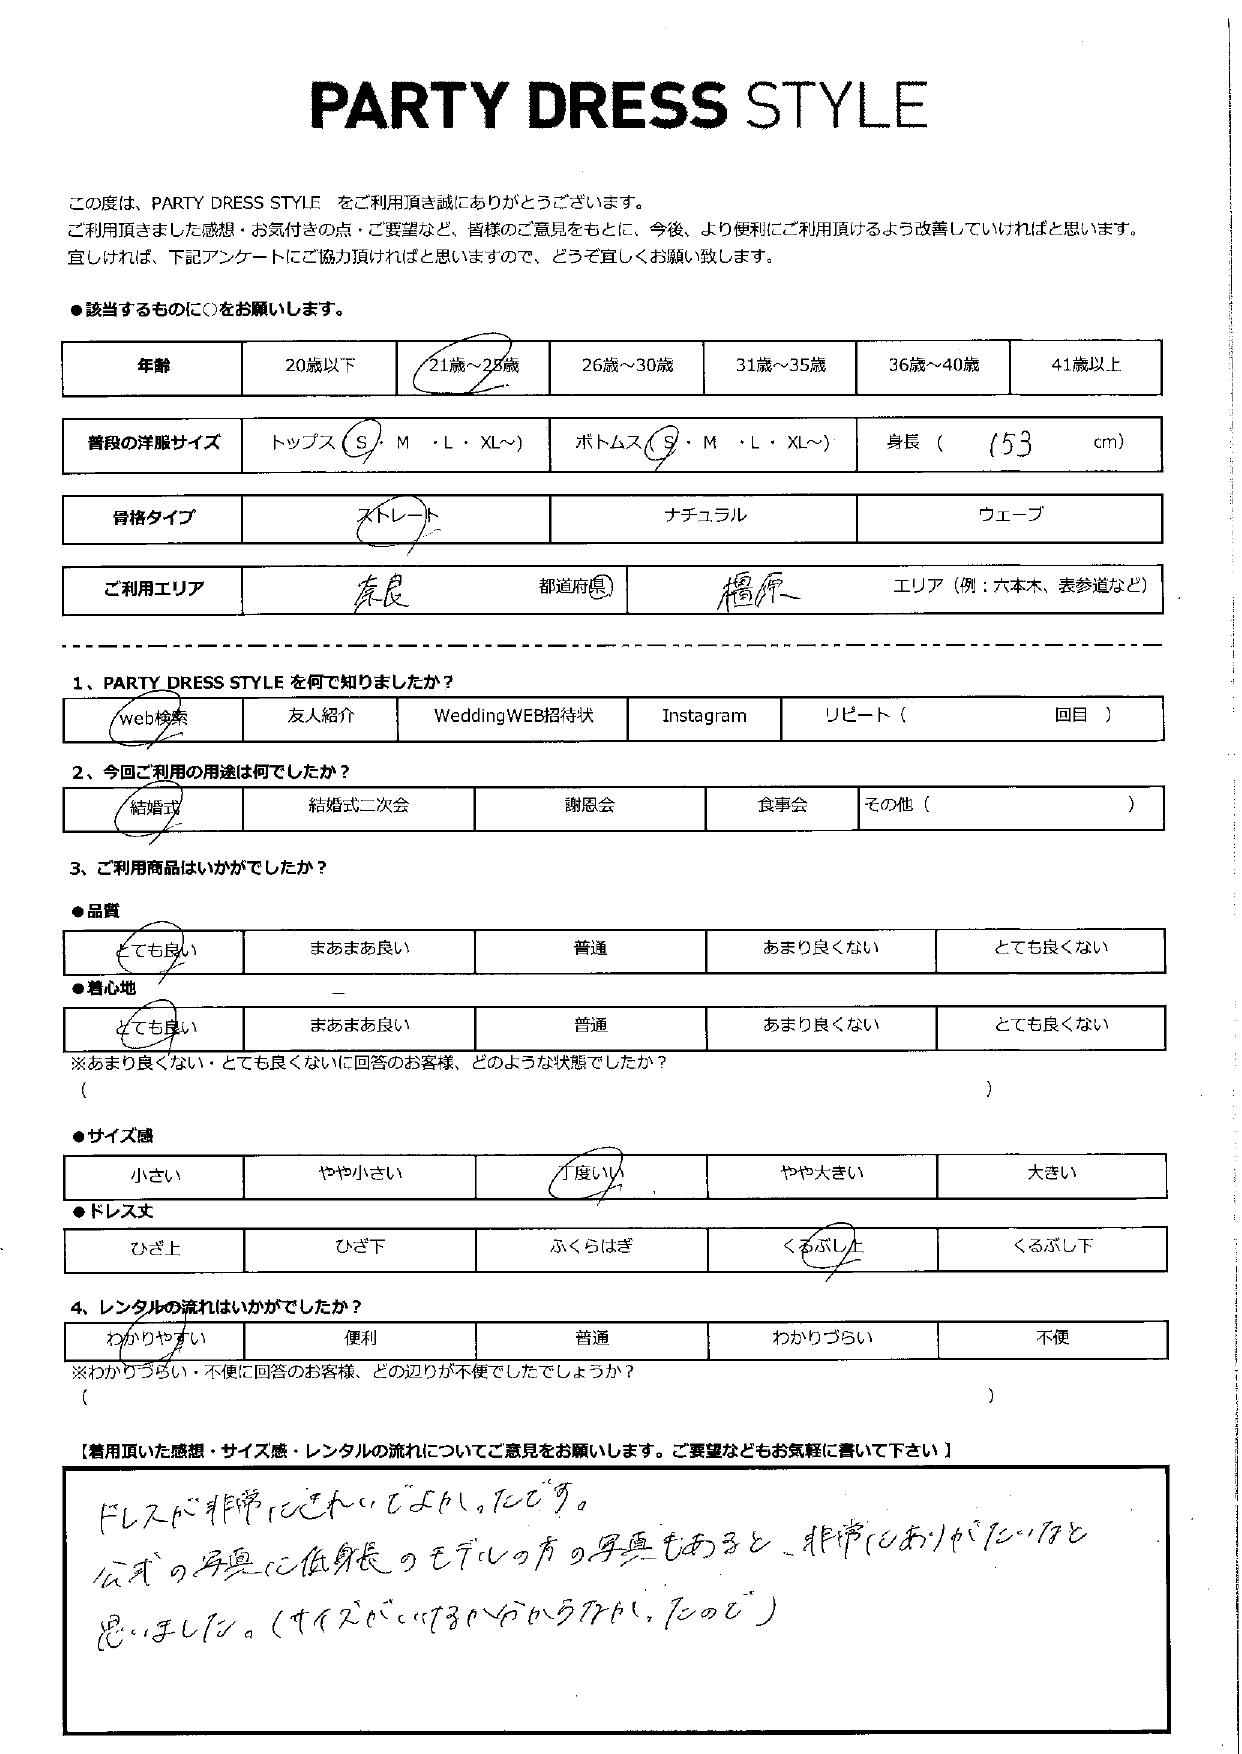 PARTY DRESS STYLE
この度は、PARTY DRESS STYLE をご利用頂き誠にありがとうございます。
ご利用頂きました感想・お気付きの点・ご要望など、皆様のご意見をもとに、今後、より便利にご利用頂けるよう改善していければと思います。
宜しければ、下記アンケートにご協力頂ければと思いますので、どうぞ宜しくお願い致します。
●該当するものに○をお願いします。
年齢 20歳以下 21歳～25歳 26歳～30歳 31歳～35歳 36歳～40歳 41歳以上
普段の洋服サイズ トップス（S・ M ・L ・ XL～) ボトムス（S・ M ・L ・ XL～) 身長 （ 153 cm）
骨格タイプ ストレート ナチュラル ウェーブ
ご利用エリア 奈良 都道府県 橿原 エリア（例：六本木、表参道など）
1、PARTY DRESS STYLE を何で知りましたか？
web検索 友人紹介 WeddingWEB招待状 Instagram リピート（ 回目 ）
2、今回ご利用の用途は何でしたか？
結婚式 結婚式二次会 謝恩会 食事会 その他（ ）
3、ご利用商品はいかがでしたか？
●品質
とても良い まあまあ良い 普通 あまり良くない とても良くない
●着心地
とても良い まあまあ良い 普通 あまり良くない とても良くない
※あまり良くない・とても良くないに回答のお客様、どのような状態でしたか？
（ ）
●サイズ感
小さい やや小さい 丁度いい やや大きい 大きい
●ドレス丈
ひざ上 ひざ下 ふくらはぎ くるぶし上 くるぶし下
4、レンタルの流れはいかがでしたか？
わかりやすい 便利 普通 わかりづらい 不便
※わかりづらい・不便に回答のお客様、どの辺りが不便でしたでしょうか？
（ ）
【着用頂いた感想・サイズ感・レンタルの流れについてご意見をお願いします。ご要望などもお気軽に書いて下さい】
ドレスが非常にきれいでよかったです。
公式の写真に低身長のモデルの方の写真もあると、非常にありがたいなと
思いました。（サイズがいけるか分からなかったので）